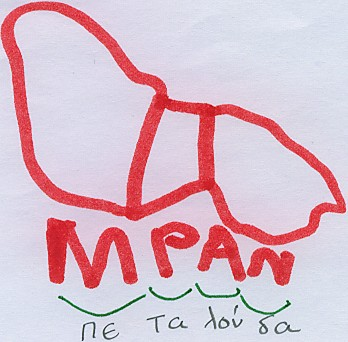 ΜΡΑΝ
πε τα λού δα